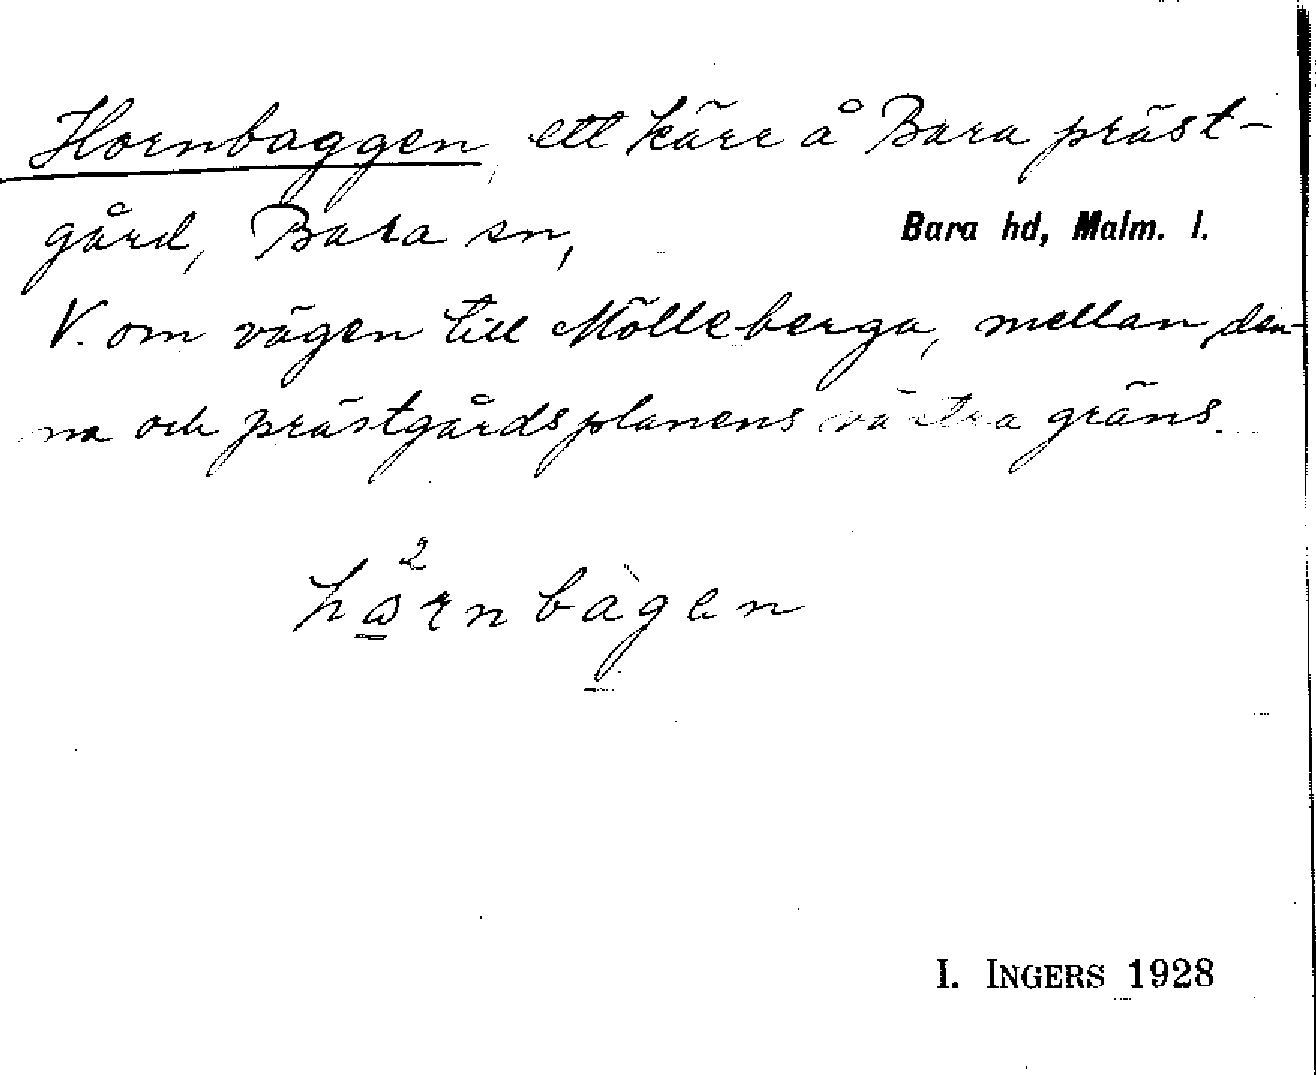 Hornbaggen, ett kärr å Bara präst-
gård, Bara sn, Bara hd, Malm. l.
V. om vägen till Mölleberga, mellan den-
na och prästgårdsplanens västra gräns.
I. INGERS 1928